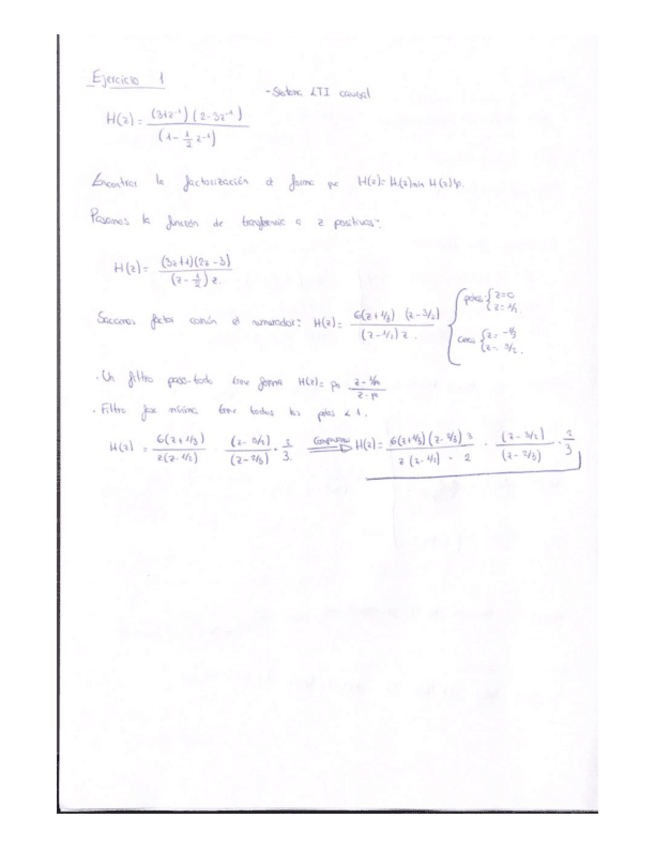 Ejercicio 1
- Sistema LTI causal
H(z) = (3+z⁻¹)(2-3z⁻¹) / (1-½z⁻¹)
Encontrar la factorización de forma que H(z) = H(z)min H(z)ap.
Pasamos la función de transferencia a z positivas:
H(z) = (3z+1)(2z-3) / (z-½)z
Sacamos factor común el numerador: H(z) = 6(z+1/3)(z-3/2) / (z-1/2)z. { polos: { z=0 z=1/2. ceros { z=-1/3 z=3/2.
· Un filtro paso-todo tiene forma H(z) =
· Filtro fase mínima tiene todos los polos < 1.
H(z) = 6(z+1/3) / z(z-1/2) · (z-3/2) / (z-2/3) · 2/3. ⟹ H(z) = 6(z+1/3)(z-2/3)3 / z(z-1/2)·2 · (z-3/2) / (z-2/3) · 2/3